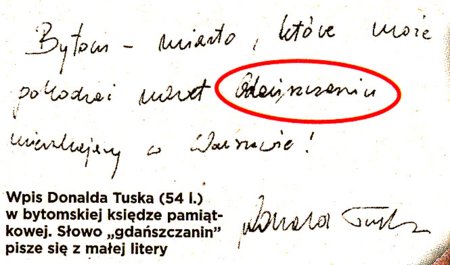 Bytom – miasto, które może
pokochać nawet Gdańszczanin
mieszkający w Warszawie!
Wpis Donalda Tuska (54 l.)
w bytomskiej księdze pamiąt-
kowej. Słowo „gdańszczanin”
pisze się z małej litery
Donald Tusk